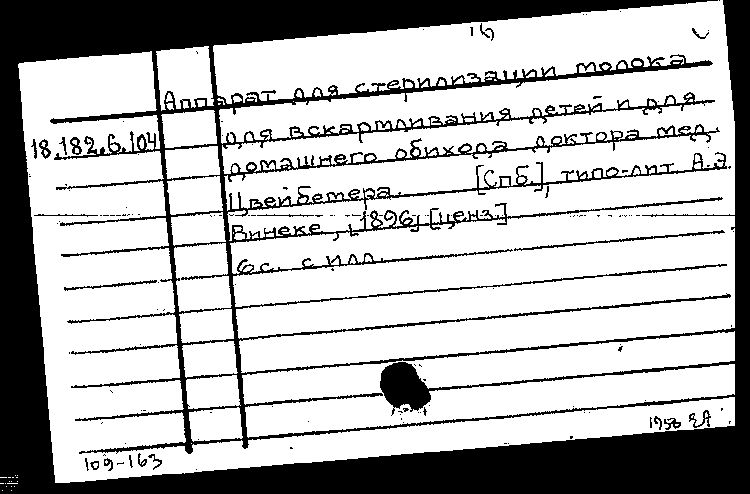 16
Аппарат для стерилизации молока
18.182.6.104 для вскармливания детей и для
домашнего обихода доктора мед.
Цвейбетера. [Спб.], типо-лит. А.Э.
Винеке, [1896] [ценз.]
6 с. с илл.
109-163